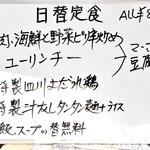 日替定食 ALL¥8
海鮮と野菜ピリ辛炒め
ユーリンチー
マーボ
豆腐
特製四川よだれ鶏
特製汁なしタンタン麺+ライス
飯、スープの替無料